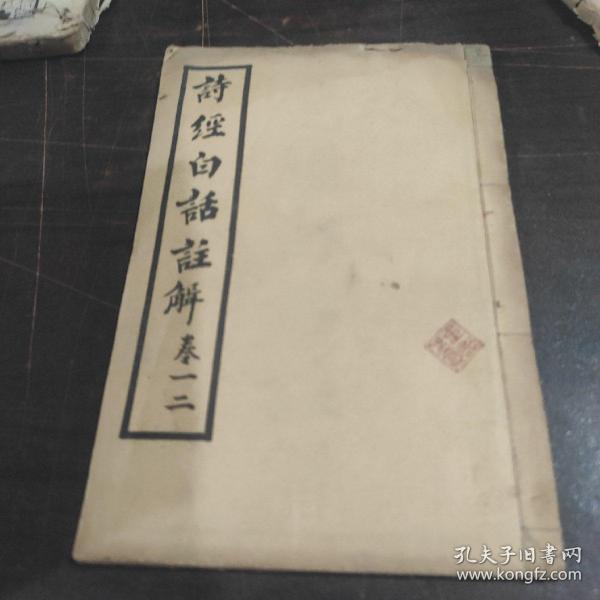 詩經白話註解 卷一二
孔夫子旧书网
www.kongfz.com